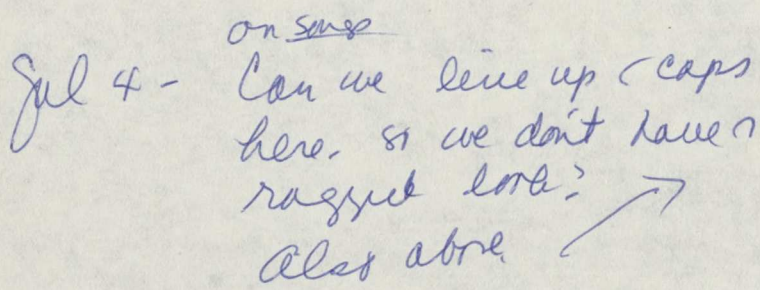 on songs
Gal 4 - Can we line up caps
here, so we don't have
ragged look?
Also above